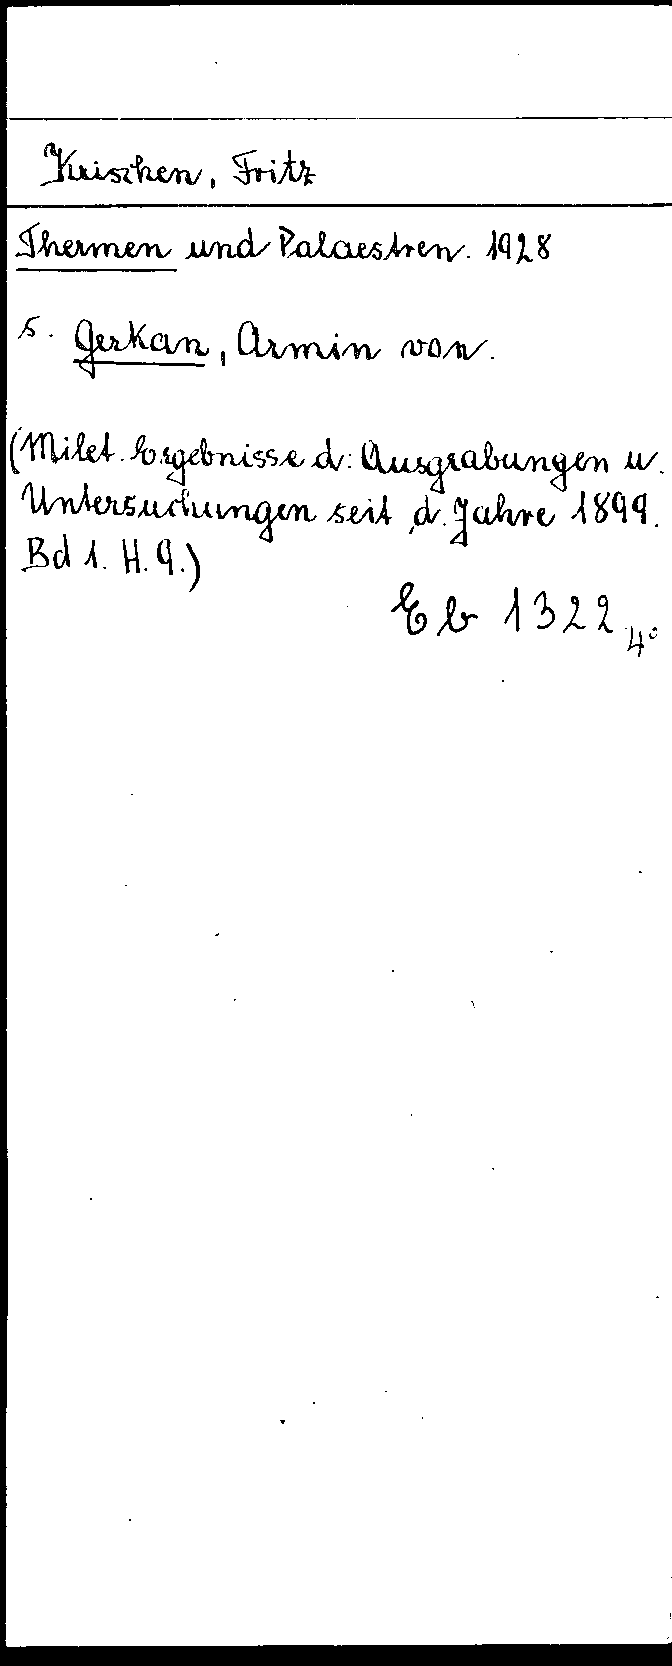 Krischen, Fritz
Thermen und Palaestren. 1928
s. Gerkan, Armin von.
(Milet. Ergebnisse d. Ausgrabungen u.
Untersuchungen seit d. Jahre 1899.
Bd 1. H. 9.)
Eb 1322 4°